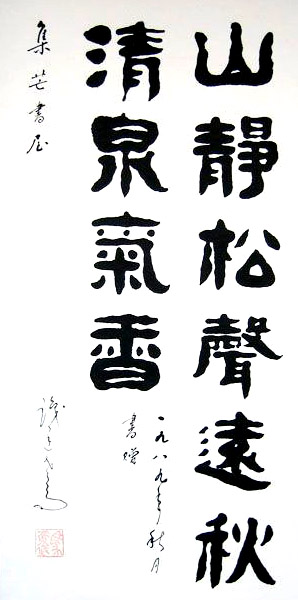 山靜松聲遠秋
清泉氣香
一九八九年秋月
書贈
集芒書屋